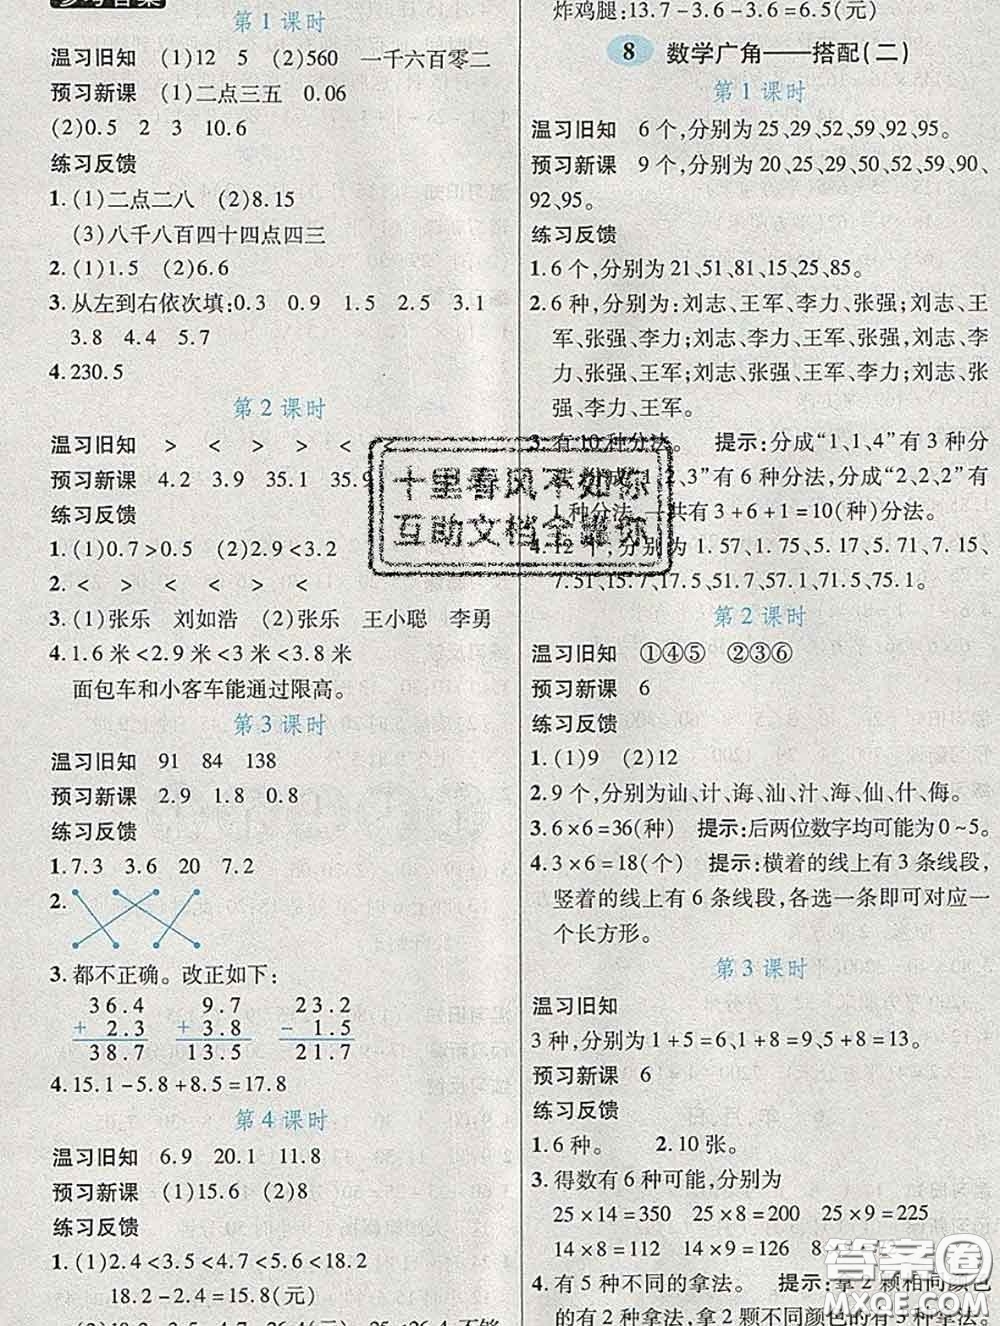 参考答案
第1课时
温习旧知 (1)12 5 (2)560 一千六百零二
预习新课 (1)二点三五 0.06
(2)0.5 2 3 10.6
练习反馈
1.(1)二点二八 (2)8.15
(3)八千八百四十四点四三
2.(1)1.5 (2)6.6
3.从左到右依次填:0.3 0.9 1.5 2.5 3.1
3.8 4.4 5.7
4.230.5
第2课时
温习旧知 > < > > <
预习新课 4.2 3.9 35.1 35.9
练习反馈
1.(1)0.7>0.5 (2)2.9<3.2
2.< > < > < >
3.(1)张乐 刘如浩 (2)张乐 王小聪 李勇
4.1.6米<2.9米<3米<3.8米
面包车和小客车能通过限高。
第3课时
温习旧知 91 84 138
预习新课 2.9 1.8 0.8
练习反馈
1.7.3 3.6 20 7.2
2.
3.都不正确。改正如下:
36.4 9.7 23.2
+ 2.3 + 3.8 - 1.5
38.7 13.5 21.7
4.15.1-5.8+8.5=17.8
第4课时
温习旧知 6.9 20.1 11.8
预习新课 (1)15.6 (2)8
练习反馈
1.(1)2.4<3.5<4.7<5.2<18.2
18.2-2.4=15.8(元)
炸鸡腿:13.7-3.6-3.6=6.5(元)
8 数学广角——搭配(二)
第1课时
温习旧知 6个,分别为25、29、52、59、92、95。
预习新课 9个,分别为20、25、29、50、52、59、90、
92、95。
练习反馈
1.6个,分别为21、51、81、15、25、85。
2.6种,分别为:刘志、王军、李力、张强;刘志、王
军、张强、李力;刘志、李力、王军、张强;刘志、李
力、张强、王军;刘志、张强、王军、李力;刘志、张
强、李力、王军。
3.有10种分法。 提示:分成“1、1、4”有3种分
法,分成“1、2、3”有6种分法,分成“2、2、2”有
1种分法,一共有3+6+1=10(种)分法。
4.12个,分别为1.57、1.75、5.17、5.71、7.15、
7.51、15.7、17.5、51.7、57.1、71.5、75.1。
第2课时
温习旧知 ①④⑤ ②③⑥
预习新课 6
练习反馈
1.(1)9 (2)12
2.9个,分别为讪、计、诲、汕、汁、海、仙、什、侮。
3.6×6=36(种) 提示:后两位数字均可能为0~5。
4.3×6=18(个) 提示:横着的线上有3条线段,
竖着的线上有6条线段,各选一条即可对应一
个长方形。
第3课时
温习旧知
3种,分别为1+5=6、1+7=8、5+7=12。
预习新课 6
练习反馈
1.6种。 2.10张。
3.得数有6种可能,分别为
25×14=350 25×8=200 25×9=225
14×8=112 14×9=126 8×9=72
4.有5种不同的拿法。 提示:拿2颗相同颜色
的有2种拿法,拿2颗不同颜色的有3种拿法。
十里春风不如你
互助文档全靠你
答案圈
MXQE.COM